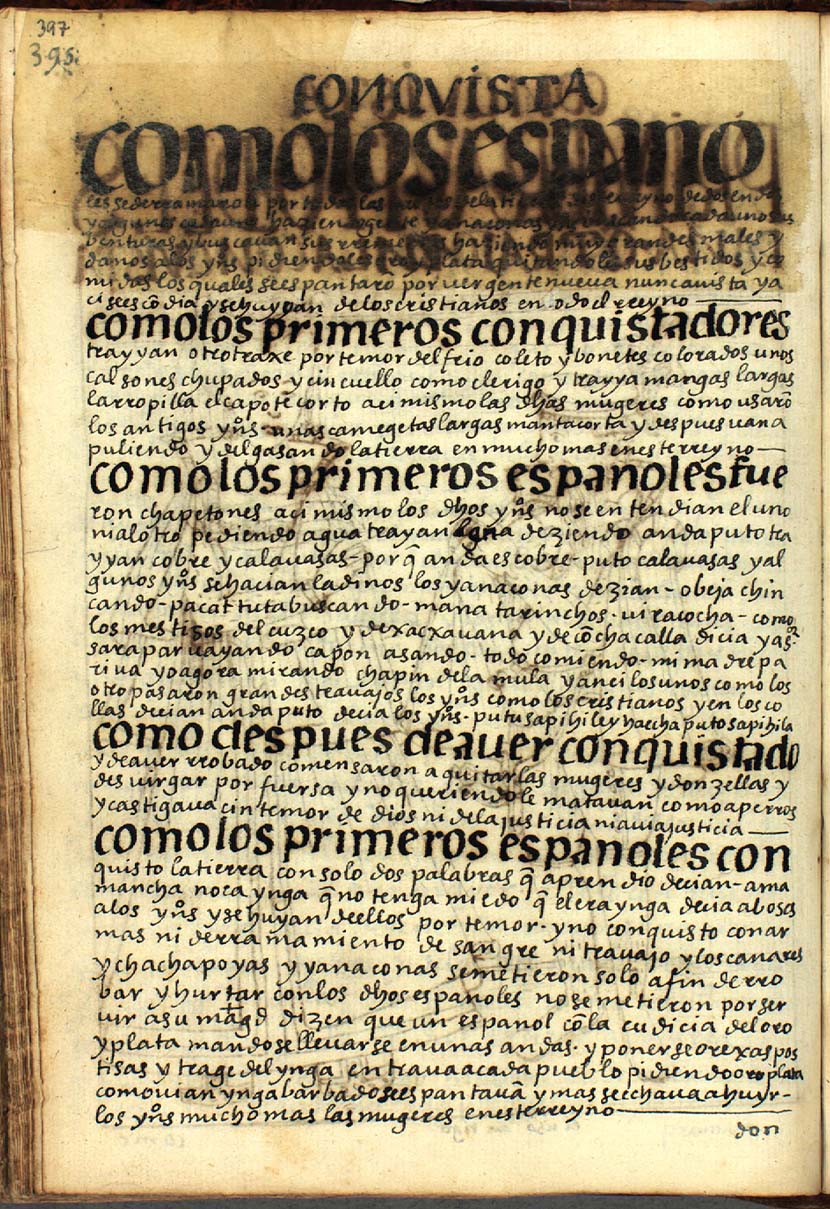 397
395
CONQVISTA
como los espano
les se derramaron por todas las partes de la tierra deste rreyno de dos en dos
y algunos cada uno haziendo gente yanaconas yns buscando cada uno sus
benturas y buscauan sus rremedios haziendo muy grandes males y
danos a los yns pidiendoles oro y plata quitandole sus bestidos y co
midas los quales se espantaron por uer gente nueua nunca uista y a
ci se escōdia y se huyyan de los cristianos en todo el rreyno
como los primeros conquistadores
trayyan otro traxe por temor del frio coleto y bonetes colorados unos
calsones chupados y cin cuello como clerigo y trayya mangas largas
la rropilla el capote corto aci mismo las dhas mugeres como usarō
los antigos yns unas camegetas largas manta corta y despues uan a
puliendo y delgasando la tierra en mucho mas en este rreyno
como los primeros españoles fue
ron chapetones aci mismo los dhos yns no se entendian el uno
ni al otro pediendo agua trayan lena deziendo anda puto tra
yyan cobre y calauasas - por q̄ anda es cobre - puto calauasas y al
gunos yns se hacian ladinos los yanaconas dezian - obeja chin
cando - pacat tuta buscando - mana tarinchos - uiracocha - como
los mestisos del cuzco y de xacxauana y de cōchacalla dicia ya sr
sara para uayando capon asando - todo comiendo - mi madre pa
riua yo agora mirando chapin de la mula y anci los unos como los
otro pasaron grandes trauajos los yns como los cristianos y en los co
llas decian anda puto decia los yns - putu sapi hiley haccha puto sapi hila
como despues de auer conquistado
y de auer rrobado comensaron a quitar las mugeres y donzellas y
desuirgar por fuersa y no queriendole matauan como a perros
y castigaua cin temor de dios ni de la justicia ni auia justicia
como los primeros españoles con
quisto la tierra con solo dos palabras q̄ aprendio decian - ama
mancha noca ynga q̄ no tenga miedo q̄ el era ynga decia a boses
a los yns y se huyan de ellos por temor - y no conquisto con ar
mas ni derramamiento de sangre ni trauajo y los canares
y chachapoyas y yanaconas se metieron solo a fin de rro
bar y hurtar con los dhos españoles no se metieron por ser
uir a su magd dizen que un español cō la cudicia del oro
y plata mandose lleuarse en unas andas - y ponerse orexas pos
tisas y trage del ynga entraua a cada pueblo pidiendo oro plata
como uian ynga barbado se espantauā y mas se echaua a huyr -
los yns mucho mas las mugeres en este rreyno
don